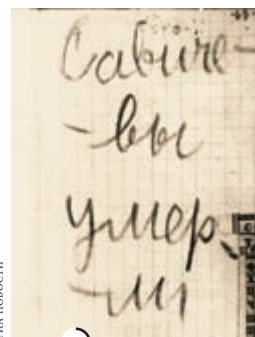 Савиче-
-вы
умер-
-ли
РИА НОВОСТИ